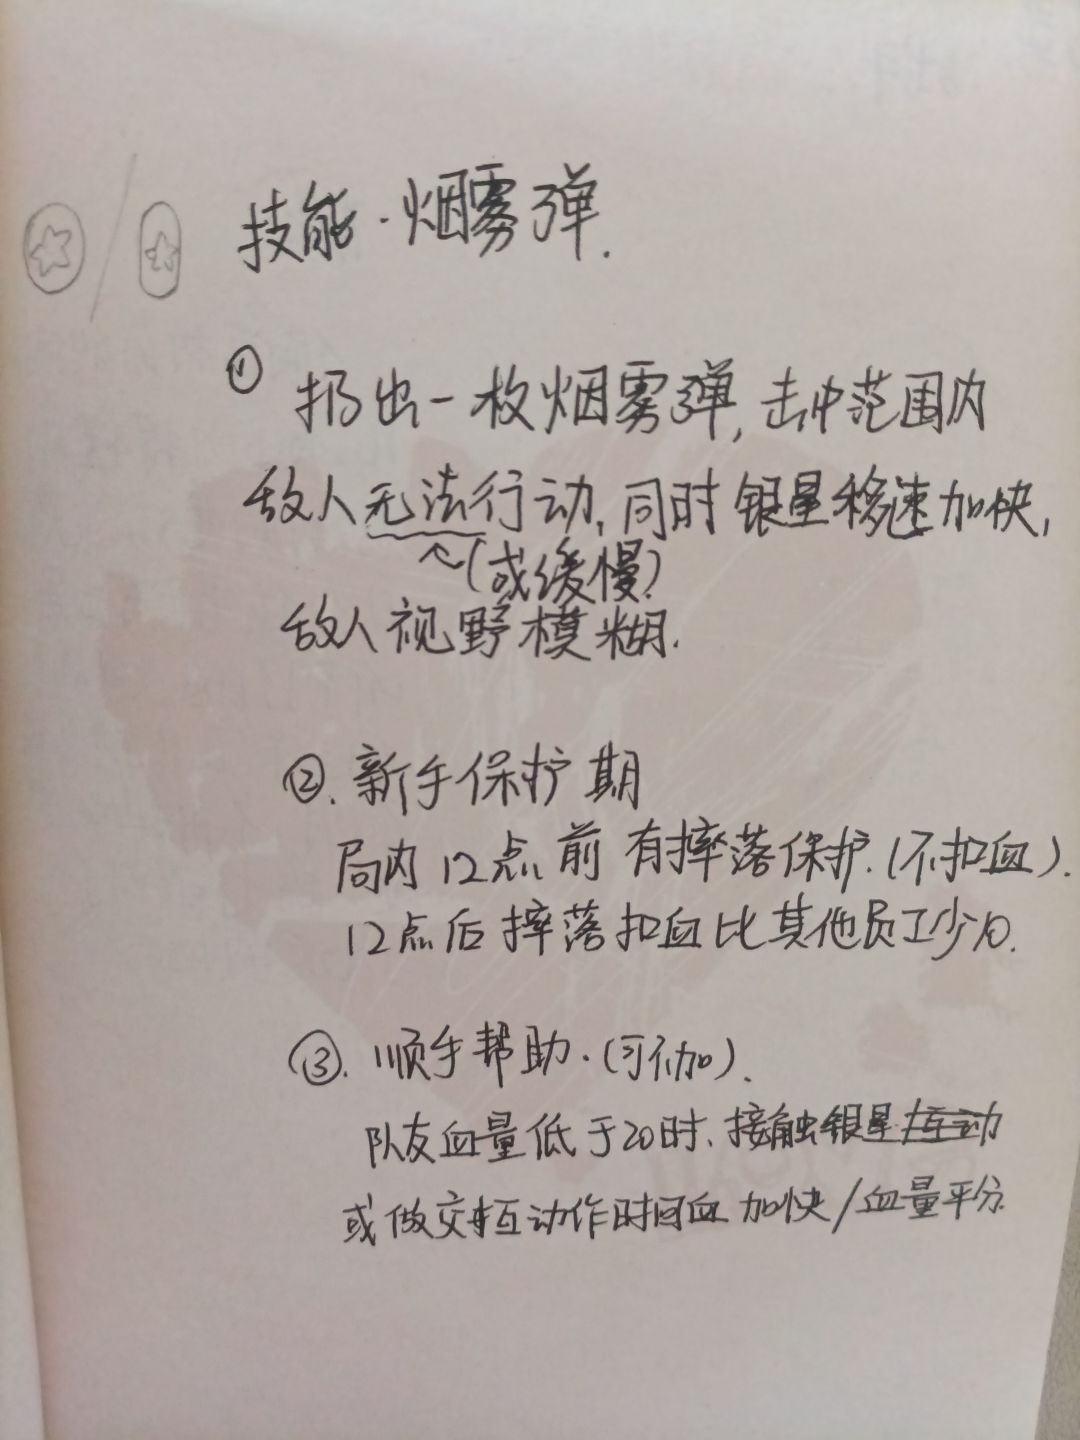 技能·烟雾弹.
① 扔出一枚烟雾弹,击中范围内
敌人无法行动,同时银星移速加快,
(或缓慢)
敌人视野模糊.
②.新手保护期
局内12点前有摔落保护.(不扣血).
12点后摔落扣血比其他员工少10.
③.顺手帮助.(可不加).
队友血量低于20时、接触银星互动
或做交互动作时回血加快/血量平分.